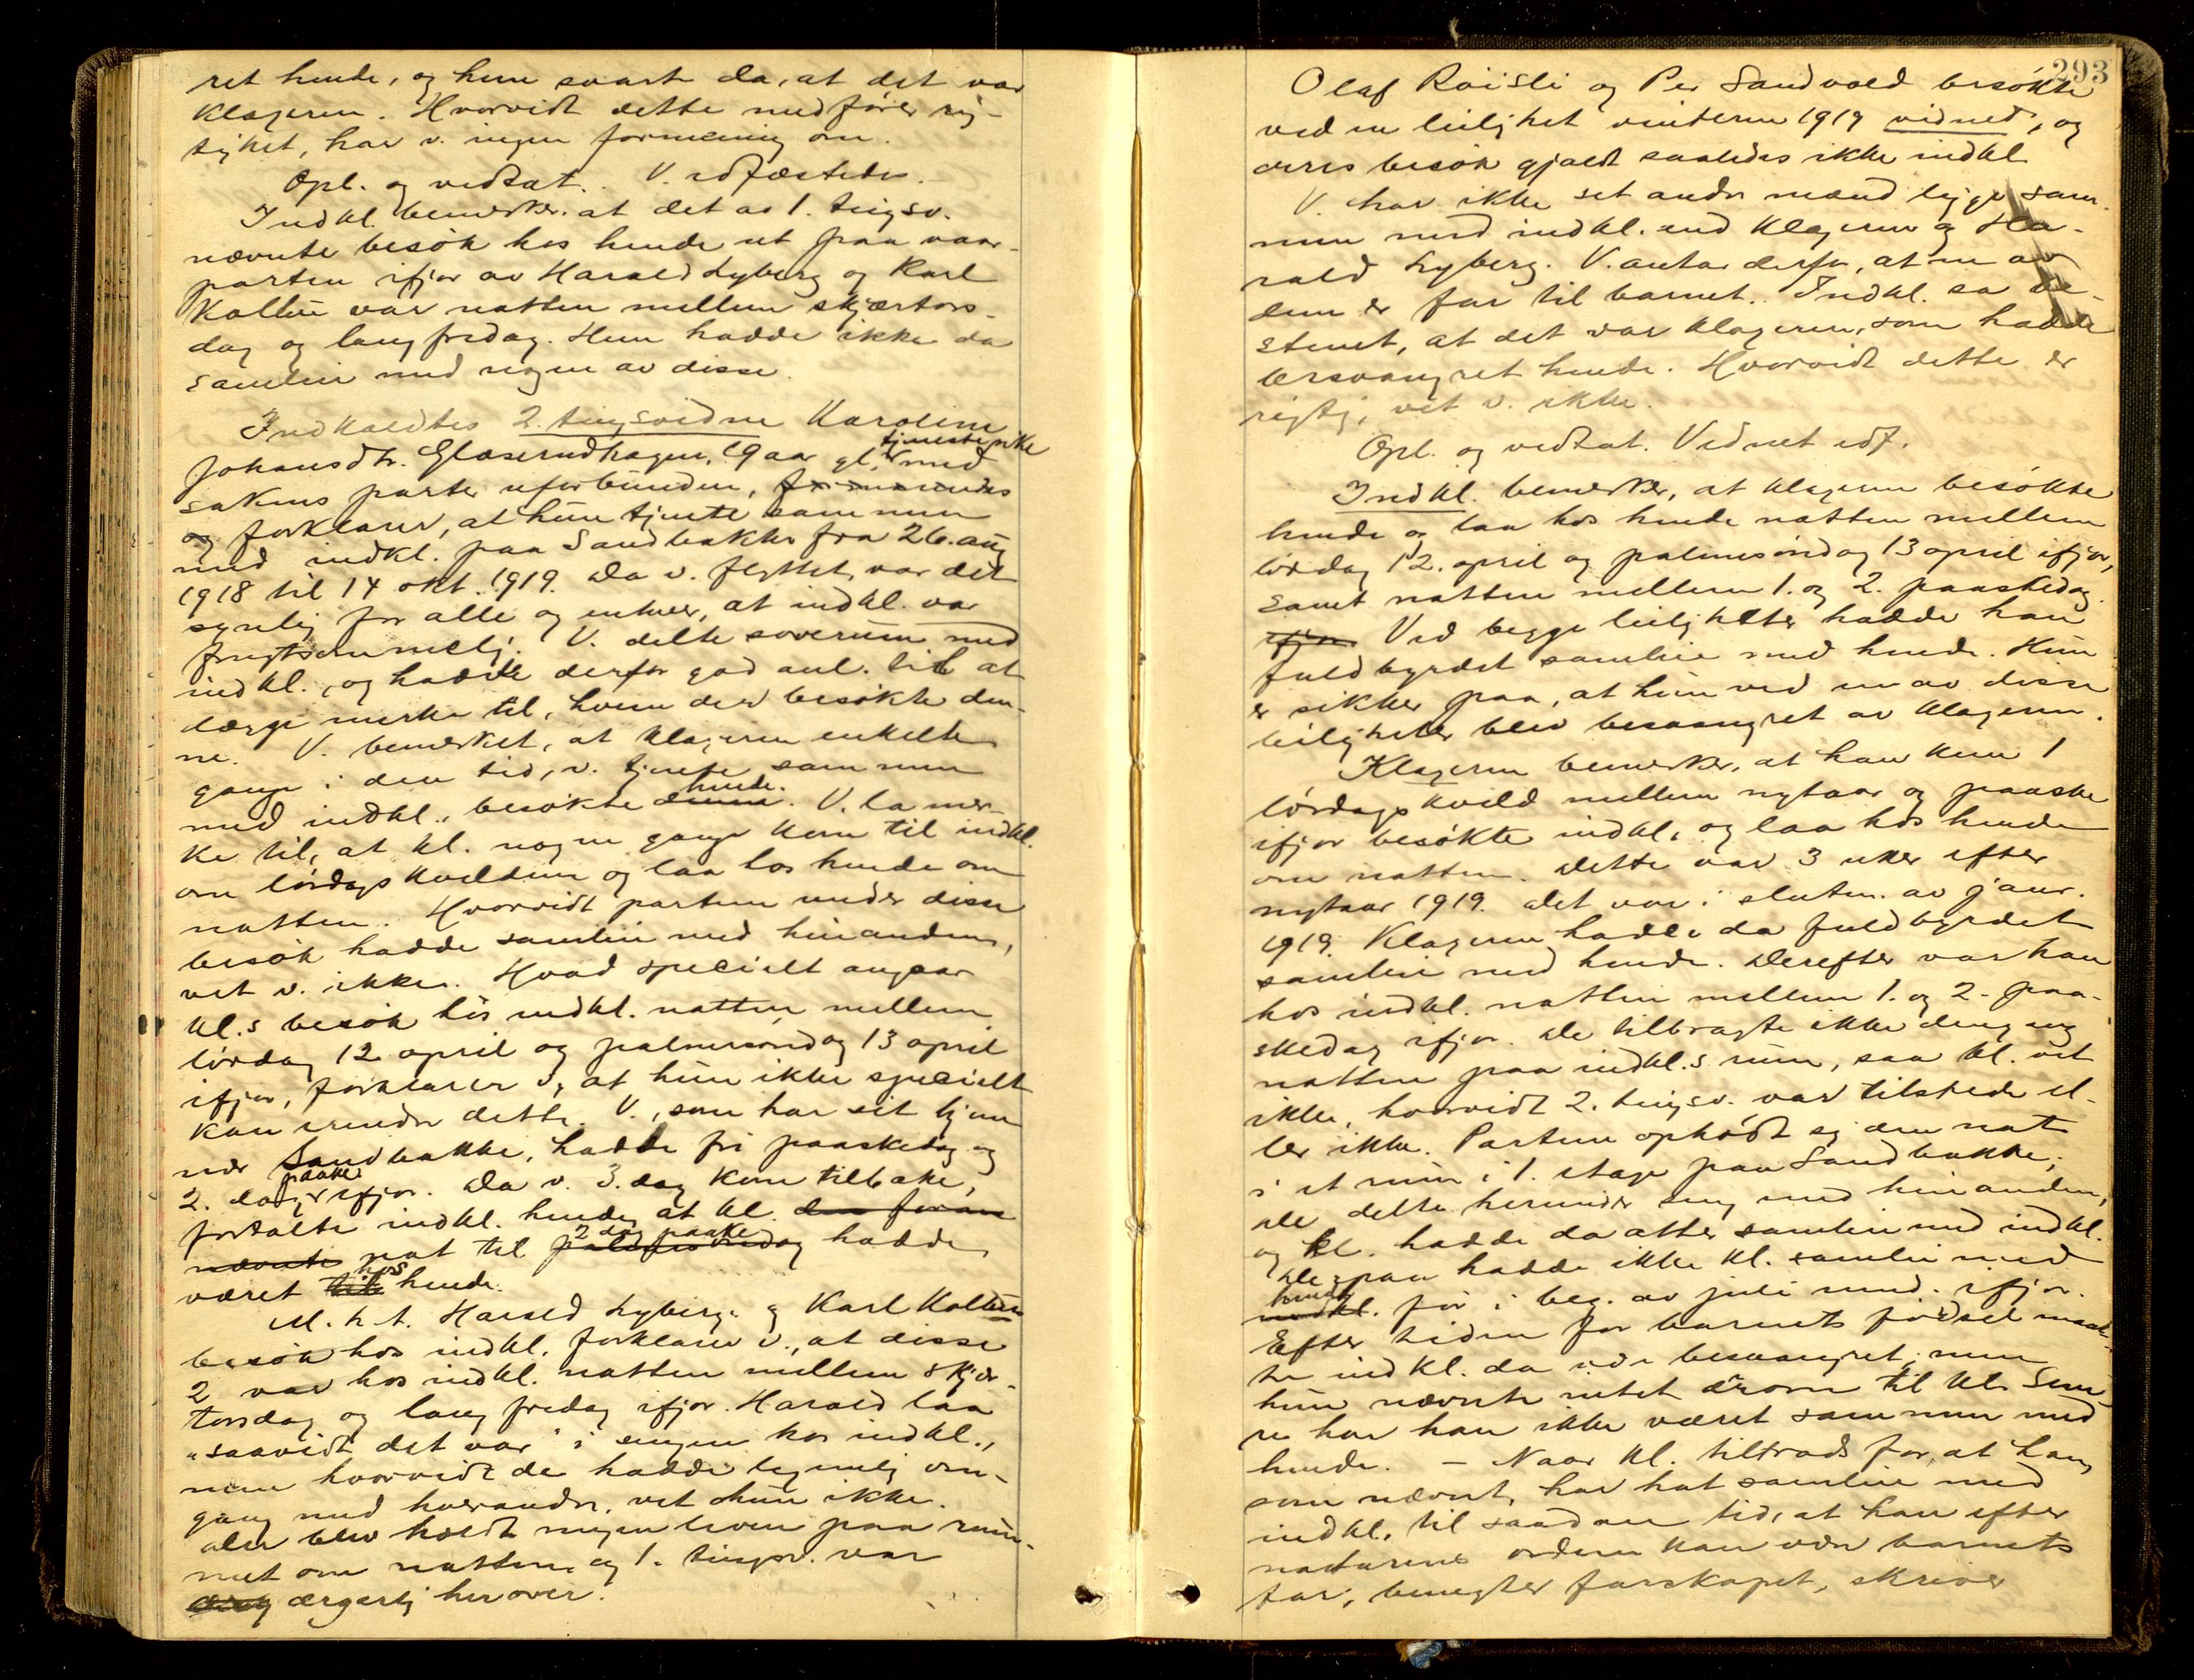 ret hende, og hun svart da, at det var
klageren. Hvorvidt dette medfører rig-
tighet, har v. ingen formening om.
Opl. og vedtat. V. edfæstedes.
Indkl. bemerker, at det av 1. tingsv.
nævnte besøk hos hende ut paa vaar-
parten ifjor av Harald Lyberg og Karl
Koltun var natten mellem skjærtors-
dag og langfredag. Hun hadde ikke da
samleie med nogen av disse.
Indkaldtes 2. tingsvidne Karoline
Johansdtr. Glaserudhagen, 19 aar gl., tjenestepike med
sakens parter uforbunden,
og forklarer, at hun tjente sammen
med indkl. paa Sandbakke fra 26. aug
1918 til 14 okt. 1919. Da v. flyttet, var det
synlig for alle og enhver, at indkl. var
frugtsommelig. V. delte soverum med
indkl., og hadde derfor god anl. til at
lægge merke til, hvem der besøkte den-
ne. V. bemerket, at klageren enkelte
gange i den tid, v. tjente sammen
med indkl., besøkte denne hende. V. la mer-
ke til, at kl. nogen gange kom til indkl.
om lørdagskvelden og laa hos hende om
natten. Hvorvidt partene under disse
besøk hadde samleie med hinanden,
vet v. ikke. Hvad specielt angaar
kl.s besøk hos indkl. natten mellem
lørdag 12 april og palmesøndag 13 april
ifjor, forklarer v., at hun ikke specielt
kan erindre dette. V., som har sit hjem
nær Sandbakke, hadde fri paaskedag og
2. dag paaske ifjor. Da v. 3. dag kom tilbake,
fortalte indkl. hende, at kl. den foran
nævnte nat til palmesøndag 2 dag paaske hadde
været til hos hende.
M. h. t. Harald Lyberg. og Karl Koltun
besøk hos indkl. forklarer v., at disse
2 var hos indkl. natten mellem skjær-
torsdag og langfredag ifjor. Harald laa
"saavidt det var" i sengen hos indkl.,
men hvorvidt de hadde legemlig om-
gang med hverandre, vet hun ikke.
Der blev holdt nogen leven paa rum-
met om natten, og 1. tingsv. var
ærgerlig herover.
293
Olaf Røisli og Per Sandvold besøkte
ved en leilighet vinteren 1919 vidnet, og
deres besøk gjaldt saaledes ikke indkl.
V. har ikke set andre mænd ligge sam-
men med indkl. end klageren og Ha-
rald Lyberg. V. antar derfor, at en av
dem er far til barnet. Indkl. sa be-
stemt, at det var klageren, som hadde
besvangret hende. Hvorvidt dette er
rigtig, vet v. ikke.
Opl. og vedtat. Vidnet edf.
Indkl. bemerker, at klageren besøkte
hende og laa hos hende natten mellem
lørdag 12. april og palmesøndag 13 april ifjor,
samt natten mellem 1. og 2. paaskedag
ifjor. Ved begge leiligheter hadde han
fuldbyrdet samleie med hende. Hun
er sikker paa, at hun ved en av disse
leiligheter blev besvangret av klageren.
Klageren bemerker, at han kun 1
lørdagskveld mellem nytaar og paaske
ifjor besøkte indkl. og laa hos hende
om natten. Dette var 3 uker efter
nytaar 1919. Det var i sluten. av janr.
1919. Klageren hadde da fuldbyrdet
samleie med hende. Derefter var han
hos indkl. natten mellem 1. og 2. paa-
skedag ifjor. De tilbragte ikke dengang
natten paa indkl.s rum, saa kl. vet
ikke, hvorvidt 2. tingsv. var tilstede el-
ler ikke. Partene opholdt sig den nat
i et rum i 1. etage paa Sandbakke;
de delte herunder seng med hinanden,
og kl. hadde da atter samleie med indkl.
Derpaa hadde ikke kl. samleie med
indkl. hende før i beg. av juli mnd. ifjor.
Efter tiden for barnets fødsel maat-
te indkl. da være besvangret, men
hun nævnte intet derom til kl. Sene-
re har han ikke været sammen med
hende. – Naar kl. tiltrods for, at han,
som nævnt, har hat samleie med
indkl. til saadan tid, at han efter
naturens orden kan være barnets
far, benegter farskapet, skriver